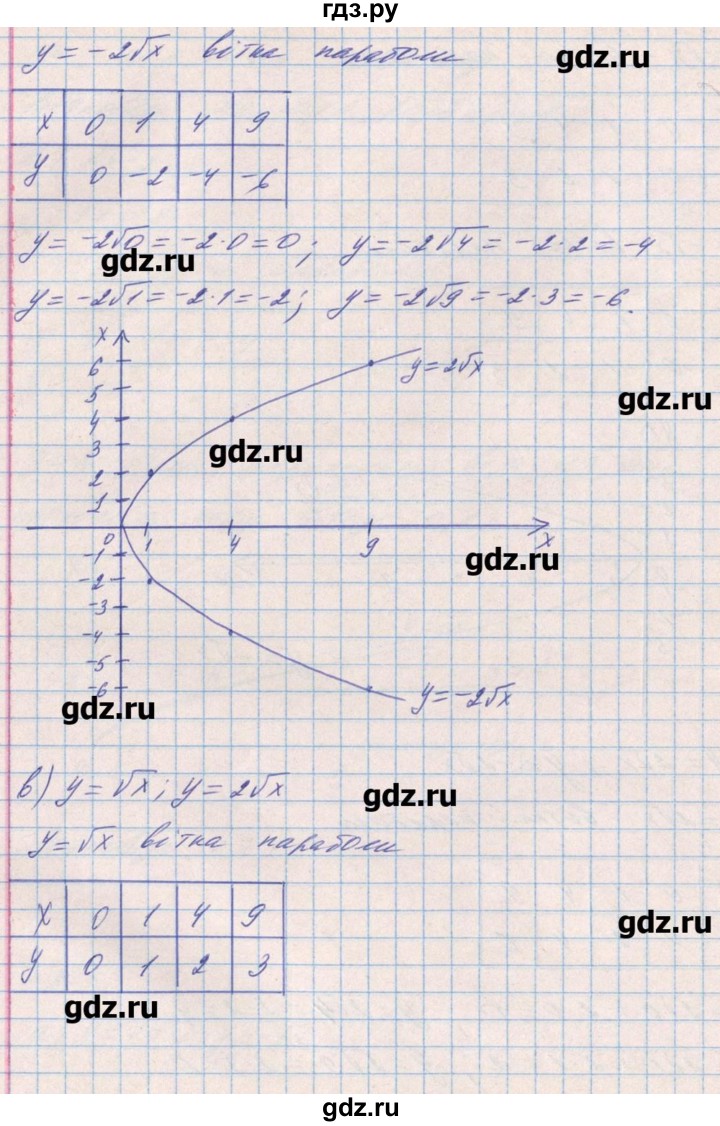 гдз.ру
y = -2√x вітка параболи
gdz.ru
x 0 1 4 9
y 0 -2 -4 -6
y = -2√0 = -2·0 = 0; y = -2√4 = -2·2 = -4
gdz.ru
y = -2√1 = -2·1 = -2; y = -2√9 = -2·3 = -6.
x
6
y = 2√x
5
gdz.ru
4
3
gdz.ru
2
1
0 1 4 9 x
gdz.ru
-1
-2
-3
-4
-5
-6
y = -2√x
gdz.ru
в) y = √x; y = 2√x
gdz.ru
y = √x вітка параболи
x 0 1 4 9
gdz.ru
y 0 1 2 3
gdz.ru
gdz.ru